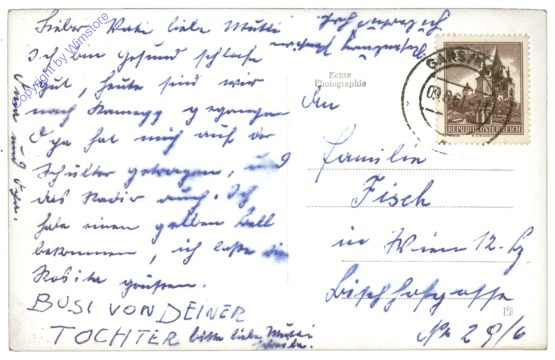 Lieber Vati liebe Mutti
Ich bin Gesund schlafe
gut, heute sind wir
nach Kamegg gegangen
Opa hat mich auf der
Schulter getragen, und
das Radio auch. Ich
habe einen gelben Ball
bekommen, ich lasse die
Rosita grüssen.
BUSI VON DEINER
TOCHTER bitte liebe Mutti
und
Copyright by Wimstore
Echte
Photographie
GARS
REPUBLIK ÖSTERREICH
An
Familie
Fisch
in Wien 12. Bg
Bischoffgasse
Nr 29/6